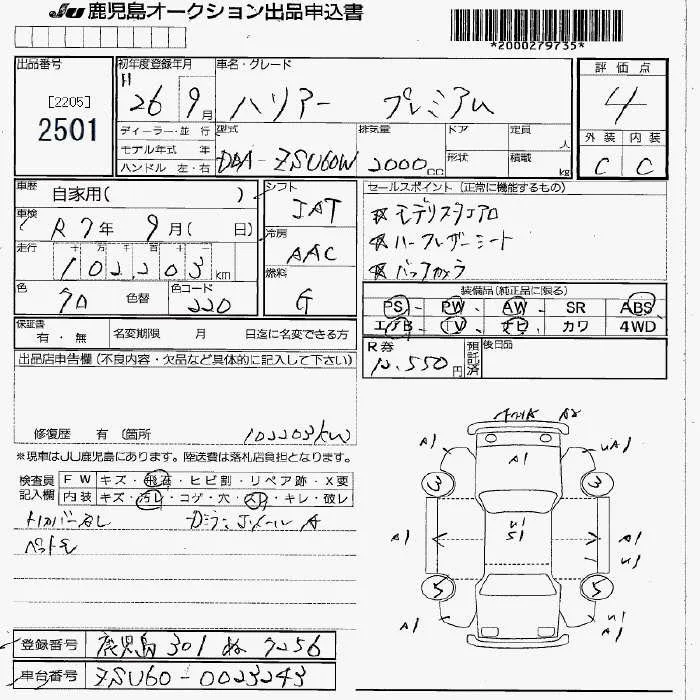 JU 鹿児島オークション出品申込書
*2000279735*
出品番号
[2205]
2501
初年度登録年月
H 26 9月
ディーラー・並行
モデル年式 年
ハンドル 左・右
車名・グレード
ハリアー プレミアム
型式
DBA-ZSU60W
排気量
2000cc
ドア
形状
定員
人
積載
kg
評価点
4
外装 内装
C C
車歴
自家用( )
車検
R7年 9月( 日)
走行
十 万 千 百 十 一
102,203km
色
クロ 色替
色コード
220
シフト
IAT
冷房
AAC
燃料
G
セールスポイント (正常に機能するもの)
モデリスタエアロ
ハーフレザーシート
バックカメラ
装備品(純正品に限る)
PS PW AW SR ABS
エアB TV ナビ カワ 4WD
保証書
有・無
名変期限 月 日迄に名変できる方
R券
12,550円
預託済
後日品
出品店申告欄(不良内容・欠品など具体的に記入して下さい)
修復歴 有 〔箇所
102203km
※現車はJU鹿児島にあります。陸送費は落札店負担となります。
検査員
記入欄
FW キズ・飛石・ヒビ割・リペア跡・X要
内装 キズ・汚レ・コゲ・穴・スレ・キレ・破レ
トノカバーなし
A2
A1 A1 A1
3 3
A1 A1
S1
5 5
A1 A1
登録番号 鹿児島 301 ぬ 7256
車台番号 ZSU60-0023243